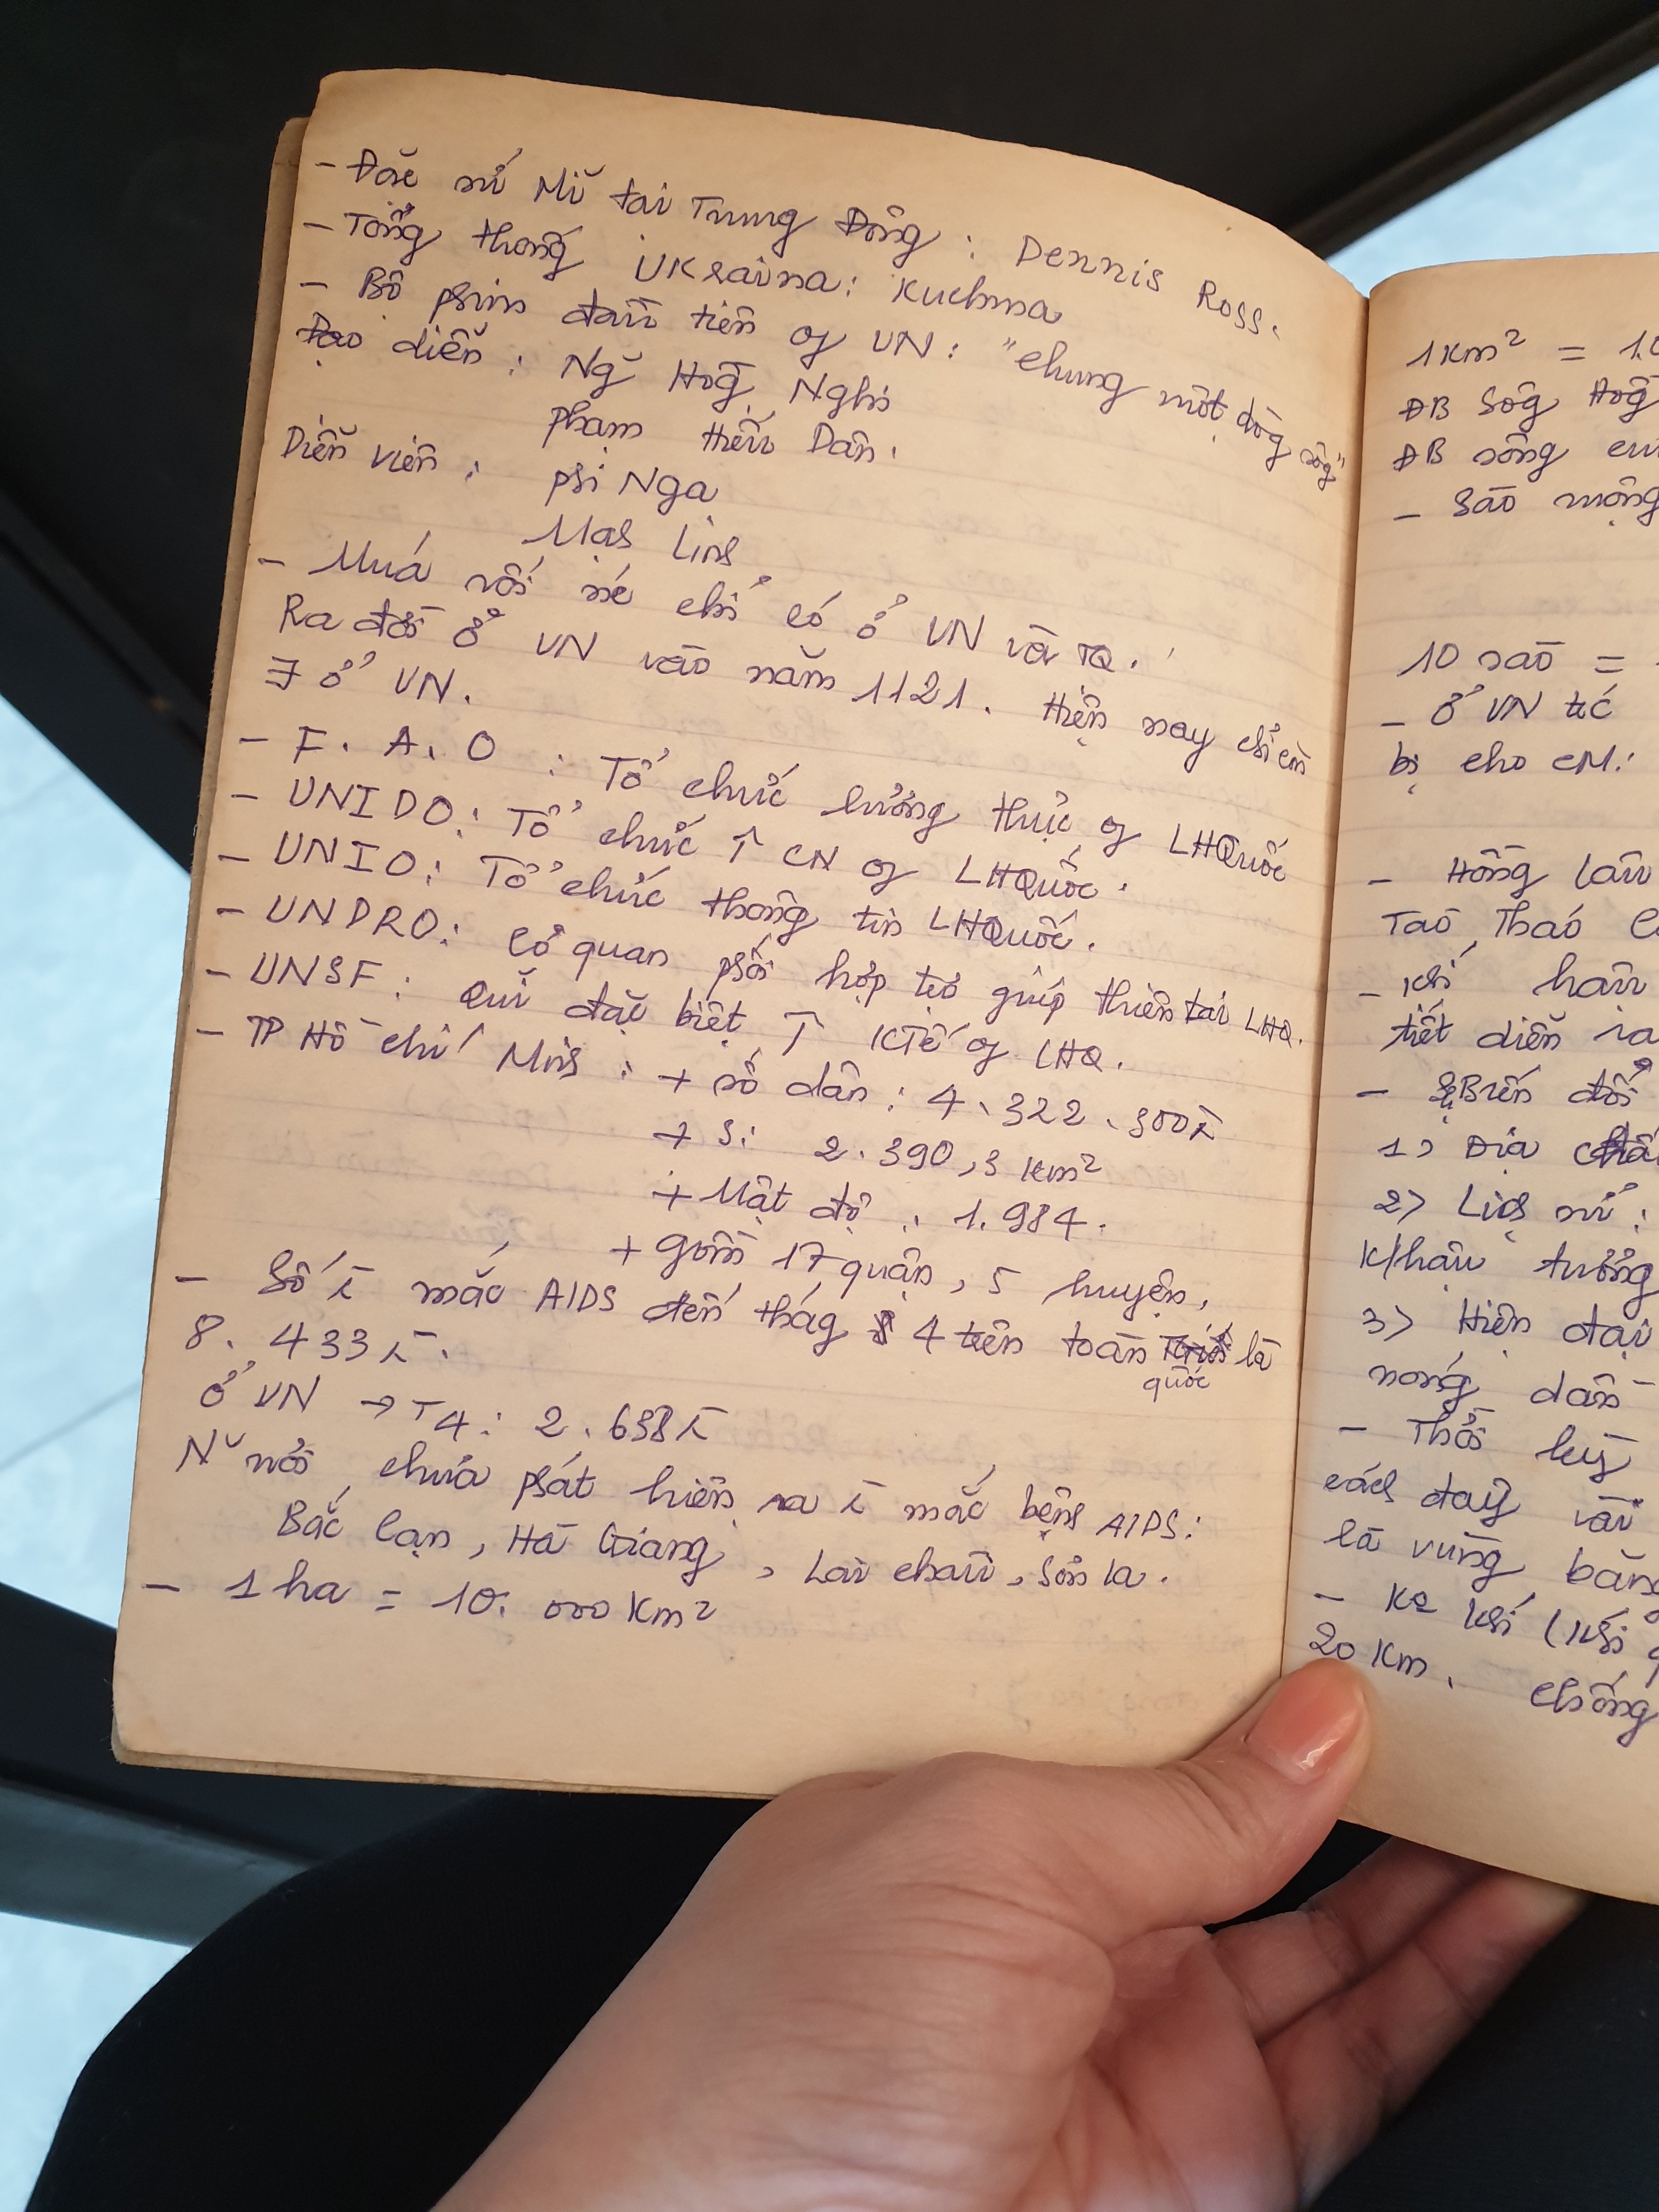 - Đặc sứ Mĩ tại Trung Đông : Dennis Ross.
- Tổng thống UKraina: Kuchma
- Bộ phim đầu tiên of VN : "chung một dòg sôg"
Đạo diễn : Ng~ Hog~ Nghi
phạm Hiếu Dân.
Diễn viên : phi Nga
Mạh Linh
- Múa rối       chỉ có ở VN và TQ.
Ra đời ở VN vào năm 1121. Hiện nay chỉ còn
∃ ở VN.
- F. A. O : Tổ chức lương thực of LHQuốc
- UNIDO: Tổ chức ↑ CN of LHQuốc.
- UNIO: Tổ chức thông tin LHQuốc.
- UNDRO: Cơ quan phối hợp trợ giúp thiên tai LHQ.
- UNSF: Quĩ đặc biệt ↑ KTế of LHQ.
- TP Hồ chí Minh : + số dân : 4.322.300
+ S: 2.390,3 km²
+ Mật độ : 1.984.
+ gồm 17 quận, 5 huyện,
- Số       mắc AIDS đến thág 4 trên toàn quốc là
8. 433
ở VN → T4: 2.638
N~ nơi chưa phát hiện ra       mắc bệnh AIDS:
Bắc Cạn, Hà Giang, Lai châu, Sơn la.
- 1 ha = 10. 000 Km²
1 km² = 1.0
ĐB Sôg Hog~
ĐB sông cửu
- Sao mộng
10 sào =
- Ở VN
bị cho CM:
- Hồng lâu
Tào Tháo
- Khí hậu
tiết diễn ra
- Biến đổi
1) Địa chất
2) Lịch sử :
K/hậu tương
3) Hiện đại
nóng dần
- Thời kỳ
cách đây vài
là vùng băng
- KQ khí (Khí q
20 Km. chống